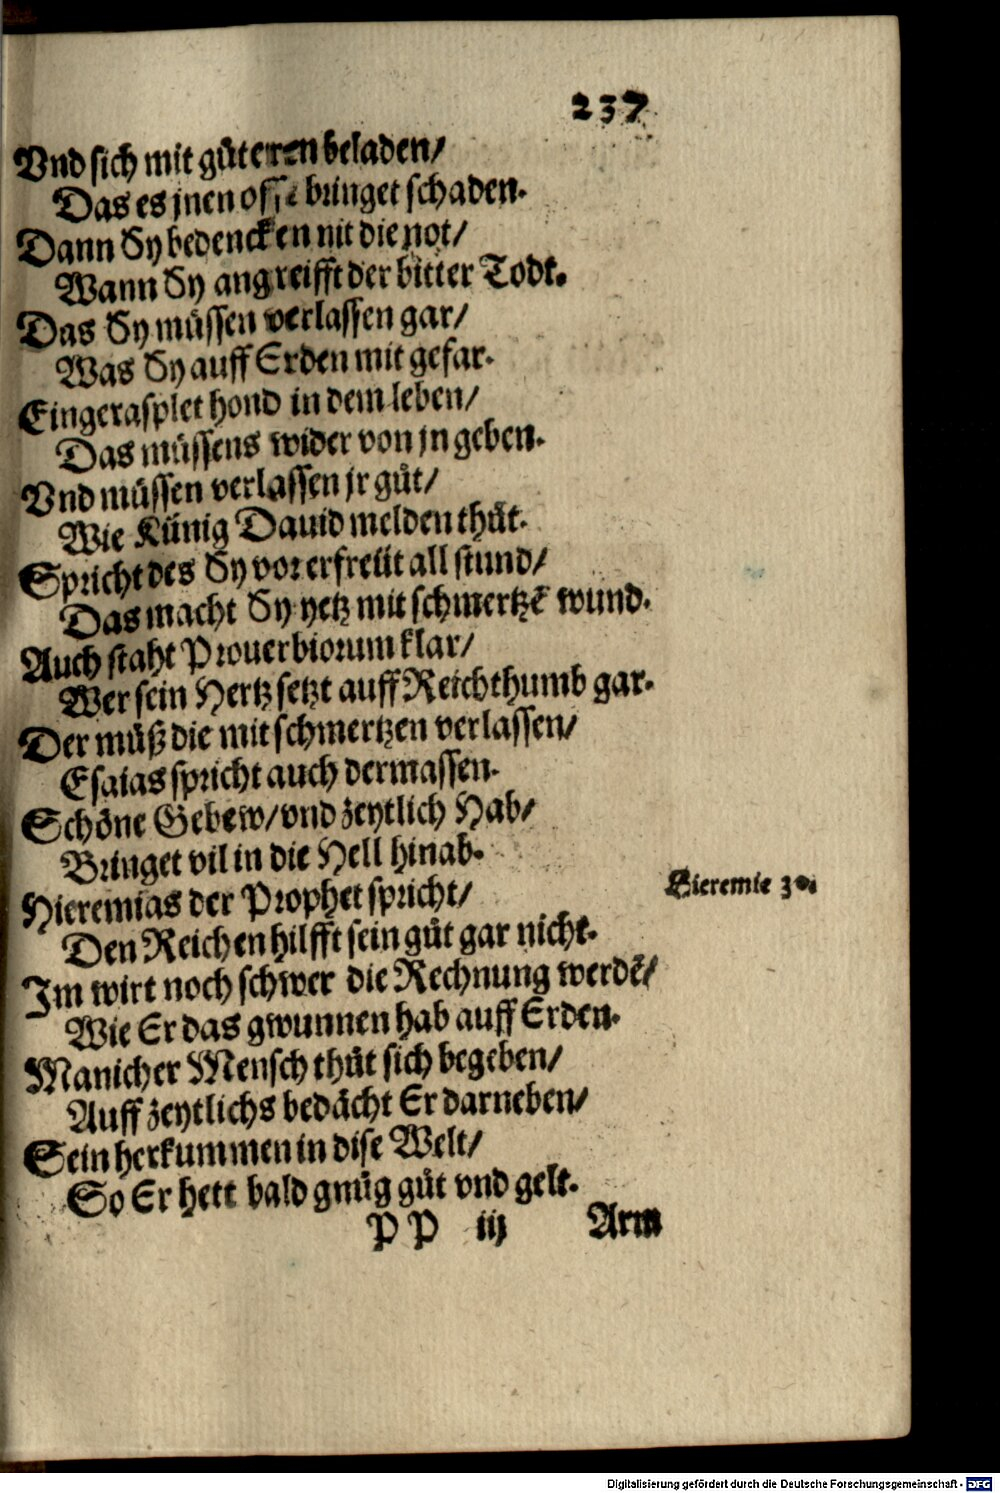 237
Vnd sich mit gůteren beladen/
Das es jnen offt bringet schaden.
Dann Sy bedencken nit die not/
Wann Sy angreifft der bitter Todt.
Das Sy müssen verlassen gar/
Was Sy auff Erden mit gefar.
Eingerasplet hond in dem leben/
Das müssens wider von jn geben.
Vnd müssen verlassen jr gůt/
Wie Künig Dauid melden thůt.
Spricht des Sy vor erfreüt all stund/
Das macht Sy yetz mit schmertzē wund.
Auch staht Prouerbiorum klar/
Wer sein Hertz setzt auff Reichthumb gar.
Der můß die mit schmertzen verlassen/
Esaias spricht auch dermassen.
Schöne Gebew/vnd zeytlich Hab/
Bringet vil in die Hell hinab.
Hieremias der Prophet spricht/
Hieremie 3.
Den Reichen hilfft sein gůt gar nicht.
Im wirt noch schwer die Rechnung werdē/
Wie Er das gwunnen hab auff Erden.
Manicher Mensch thůt sich begeben/
Auff zeytlichs bedächt Er darneben/
Sein herkummen in dise Welt/
So Er hett bald gnůg gůt vnd gelt.
P P iij Arm
Digitalisierung gefördert durch die Deutsche Forschungsgemeinschaft - DFG